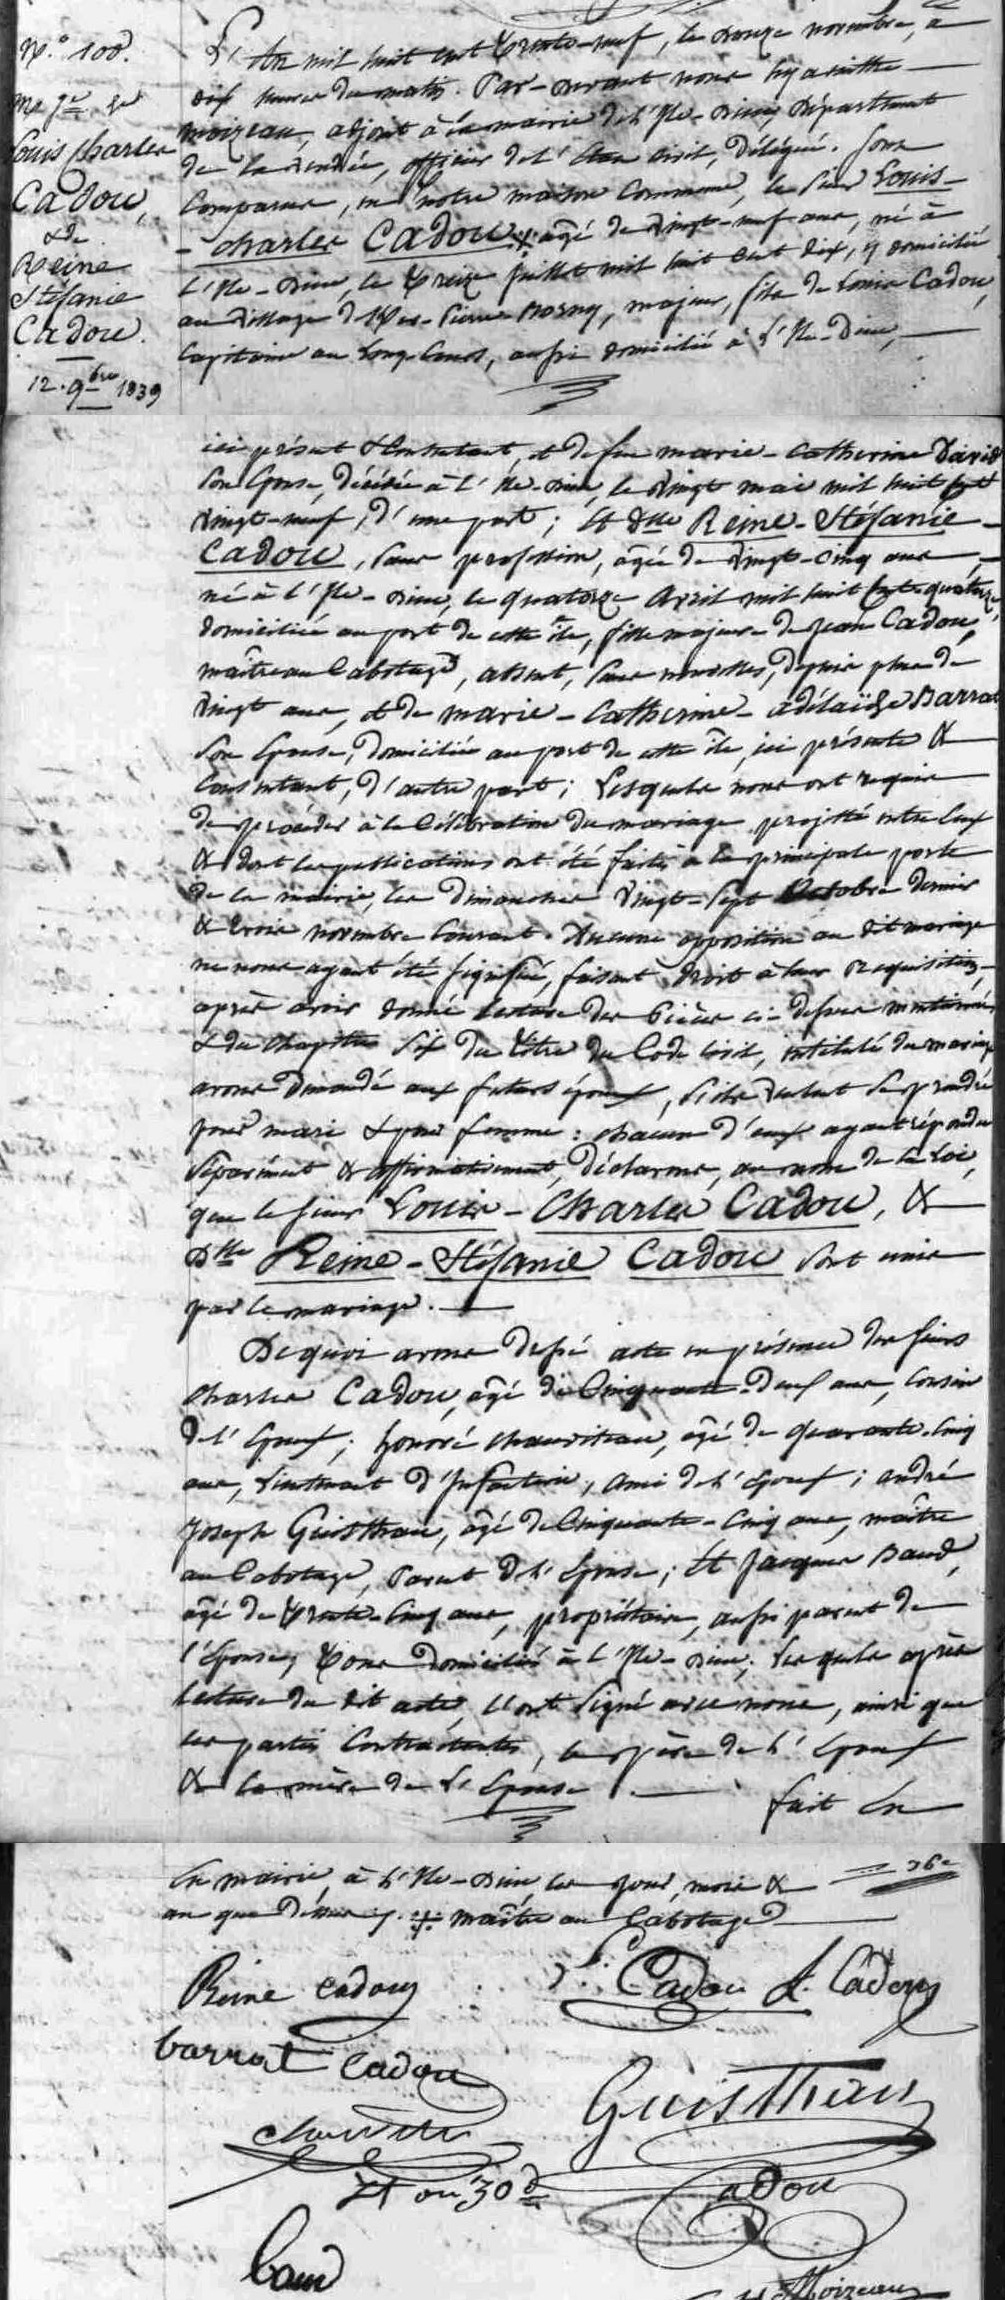 N.° 100.
me ge de
Louis Charles
Cadou,
& de
Reine
Stéfanie
Cadou.
12. 9bre 1839
L'An mil huit cent trente-neuf, le douze novembre, à
dix heures du matin. Par-devant nous hyacinthe
moizeau, adjoint à la mairie de l'Ile-Dieu, Département
de la vendée, officier de l'état civil, délégué. Sont
comparus, en notre maison commune, le sieur Louis-
-Charles Cadou ⁜ âgé de vingt-neuf ans, né à
l'Ile-Dieu, le treize juillet mil huit cent dix, y domicilié
au village de Pierre Borny, majeur, fils de Louis Cadou,
capitaine au long-cours, aussi domicilié à l'Ile-Dieu,
ici présent & consentant, et de feue marie-Catherine David
son épouse, décédée à l'Ile-Dieu, le vingt mai mil huit cent
vingt-neuf, d'une part ; Et Dlle Reine-Stéfanie-
Cadou, sans profession, âgée de vingt-cinq ans,
né à l'Ile-Dieu, le quatorze avril mil huit cent quatorze,
domiciliée au port de cette île, fille majeure de Jean Cadou,
maître au Cabotage, absent, sans nouvelles, depuis plus de
vingt ans, et de marie-Catherine-adélaïde Barrat
son épouse, domiciliée au port de cette île, ici présente &
consentant, d'autre part ; Lesquels nous ont requis
de procéder à la célébration du mariage projetté entre eux
& dont les publications ont été faites à la principale porte
de la mairie, les dimanches vingt-sept Octobre dernier
& trois novembre courant. Aucune opposition au dit mariage
ne nous ayant été signifiée, faisant droit à leur réquisition,
après avoir donné lecture des pièces ci-dessus mentionnées
& du chapitre six du titre du Code civil, intitulé du mariage
avons demandé aux futurs époux, s'ils veulent se prendre
pour mari & pour femme : chacun d'eux ayant répondu
séparément & affirmativement, déclarons, au nom de la loi,
que le sieur Louis-Charles Cadou, &
Dlle Reine-Stéfanie Cadou sont unis
par le mariage.
De quoi avons dressé acte en présence des sieurs
Charles Cadou, âgé de cinquante-deux ans, cousin
de l'époux ; honoré chauviteau, âgé de quarante-cinq
ans, Lieutenant d'Infanterie, ami de l'époux ; andré
Joseph Guistthau, âgé de cinquante-cinq ans, maître
au Cabotage, parent de l'épouse ; Et Jacques Baud,
âgé de trente-cinq ans, propriétaire, aussi parent de
l'épouse, tous domiciliés à l'Ile-Dieu ; Lesquels après
lecture du dit acte, l'ont signé avec nous, ainsi que
les parties contractantes, le père de l'époux
& la mère de l'épouse.
fait En
En mairie, à l'Ile-Dieu les jour, mois &
an que dessus ⁜ maître au Cabotage
Reine cadou
Cadou L. Cadou
barrat cadou
Guistthau
Lt au 30e
Cadou
baud
Moizeau